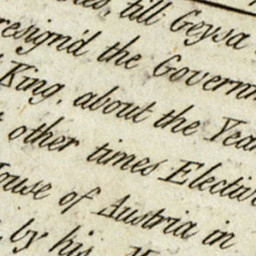 till Geysa
resign'd the Governm
King, about the Year
other times Elective
House of Austria in
by his